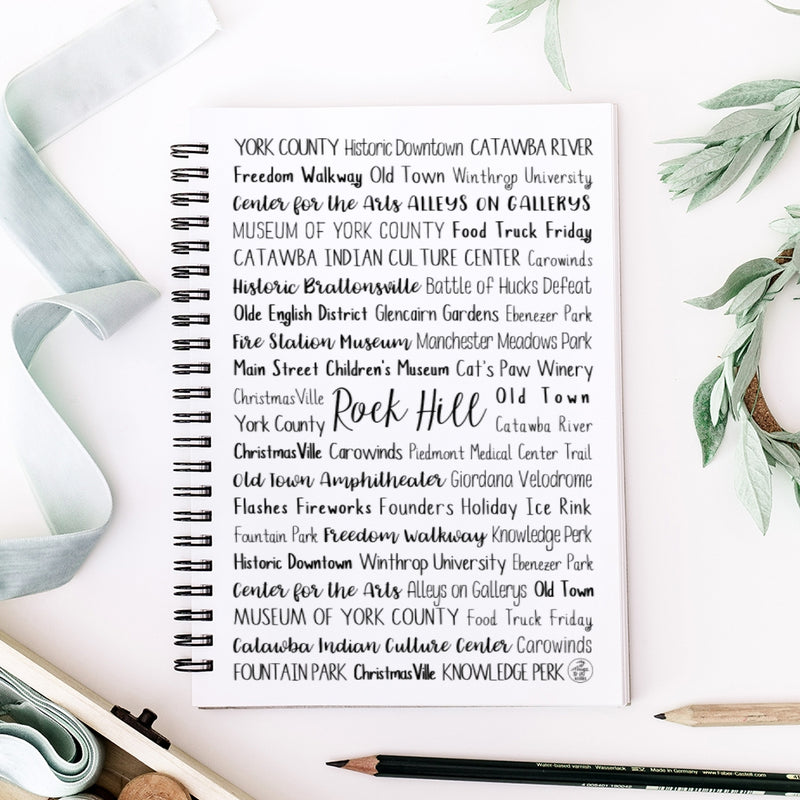 YORK COUNTY Historic Downtown CATAWBA RIVER
Freedom Walkway Old Town Winthrop University
Center for the Arts ALLEYS ON GALLERYS
MUSEUM OF YORK COUNTY Food Truck Friday
CATAWBA INDIAN CULTURE CENTER Carowinds
Historic Brattonsville Battle of Hucks Defeat
Olde English District Glencairn Gardens Ebenezer Park
Fire Station Museum Manchester Meadows Park
Main Street Children's Museum Cat's Paw Winery
ChristmasVille Rock Hill Old Town
York County Catawba River
ChristmasVille Carowinds Piedmont Medical Center Trail
Old Town Amphitheater Giordana Velodrome
Flashes Fireworks Founders Holiday Ice Rink
Fountain Park Freedom Walkway Knowledge Perk
Historic Downtown Winthrop University Ebenezer Park
Center for the Arts Alleys on Gallerys Old Town
MUSEUM OF YORK COUNTY Food Truck Friday
Catawba Indian Culture Center Carowinds
FOUNTAIN PARK ChristmasVille KNOWLEDGE PERK
Water-based varnish Wasserlack Made in Germany www.Faber-Castell.com